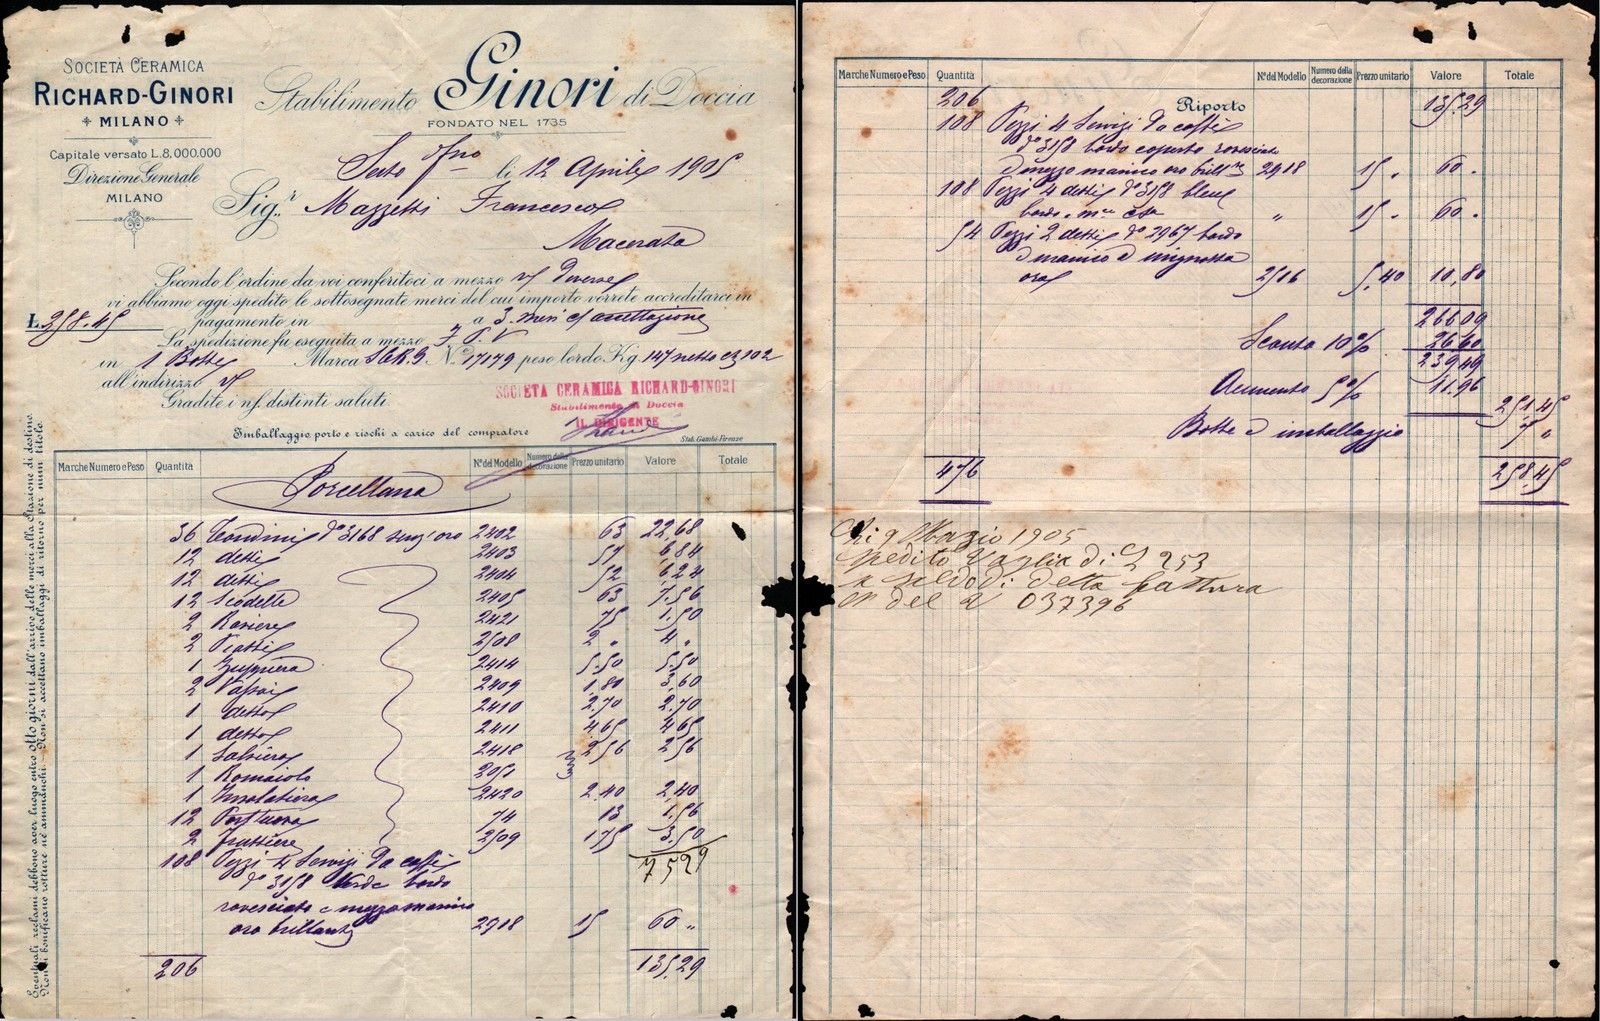 SOCIETÀ CERAMICA
RICHARD-GINORI
MILANO
Capitale versato L. 8,000.000
Direzione Generale
MILANO
Stabilimento Ginori di Doccia
FONDATO NEL 1735
Sesto Fno li 12 Aprile 1905
Sig.r Mazzetti Francesco
Macerata
Secondo l'ordine da voi conferitoci a mezzo
vi abbiamo oggi spedito le sottosegnate merci del cui importo vorrete accreditarci in
L. 258.45 pagamento in a 3 mesi c/ accettazione
La spedizione fu eseguita a mezzo F. P. V
in 1 Botte Marca S.C.R.G. N. 17179 peso lordo Kg. 147 netto 102
all'indirizzo
Gradite i nf. distinti saluti.
SOCIETÀ CERAMICA RICHARD-GINORI
Stabilimento di Doccia
IL DIRIGENTE
Imballaggio, porto e rischi a carico del compratore
Stab. Gambi-Firenze
Eventuali reclami debbono aver luogo entro otto giorni dall'arrivo delle merci alla Stazione di destino.
Non si bonificano rotture nè ammanchi. - Non si accettano imballaggi di ritorno per niun titolo.
Marche Numero e Peso Quantità N.o del Modello Numero della decorazione Prezzo unitario Valore Totale
Porcellana
36 Tondini Do 3168 senz'oro 2402 63 22,68
12 detti 2403 57 6.84
12 detti 2404 52 6.24
12 Scodelle 2405 63 7.56
2 Raviere 2421 75 1.50
2 Piatti 2508 2 „ 4 „
1 Zuppiera 2414 5.50 5.50
2 Vassoi 2409 1.80 3.60
1 detto 2410 2.70 2.70
1 detto 2411 4.65 4.65
1 Salsiera 2418 2.56 2.56
1 Romaiolo 2051
1 Insalatiera 2420 2.40 2.40
12 Portuova 74 13 1.56
2 Fruttiere 2509 1.75 3.50
7529
108 Pezzi 4 Servizi da caffè
Do 3158 verde bordo
rovesciato e mezzo manico
oro brillante 2918 15 60 „
206 135.29
Marche Numero e Peso Quantità N.o del Modello Numero della decorazione Prezzo unitario Valore Totale
206 Riporto 135.29
108 Pezzi 4 Servizi da caffè
Do 3158 bordo coperto rovesciato
e mezzo manico oro brillte 2918 15 . 60 .
108 Pezzi 4 detti Do 3158 bleu
bordo „ 15 . 60 .
54 Pezzi 2 detti Do 2967 bordo
e manico
oro 2506 5.40 10,80
266.09
Sconto 10% 26.60
239.49
Aumento 5% 11.96
251.45
Botte e imballaggio 7 „
476 258.45
Li 9 Maggio 1905
spedito Vaglia di L 253
a saldo di detta fattura
N del V 037396